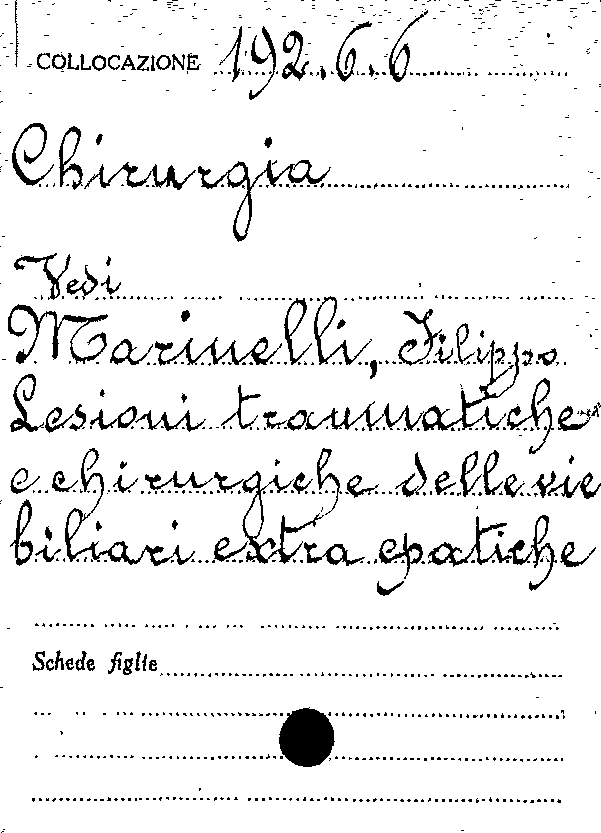 COLLOCAZIONE 192.6.6
Chirurgia
Vedi
Marinelli, Filippo
Lesioni traumatiche
e chirurgiche delle vie
biliari extra epatiche
Schede figlie